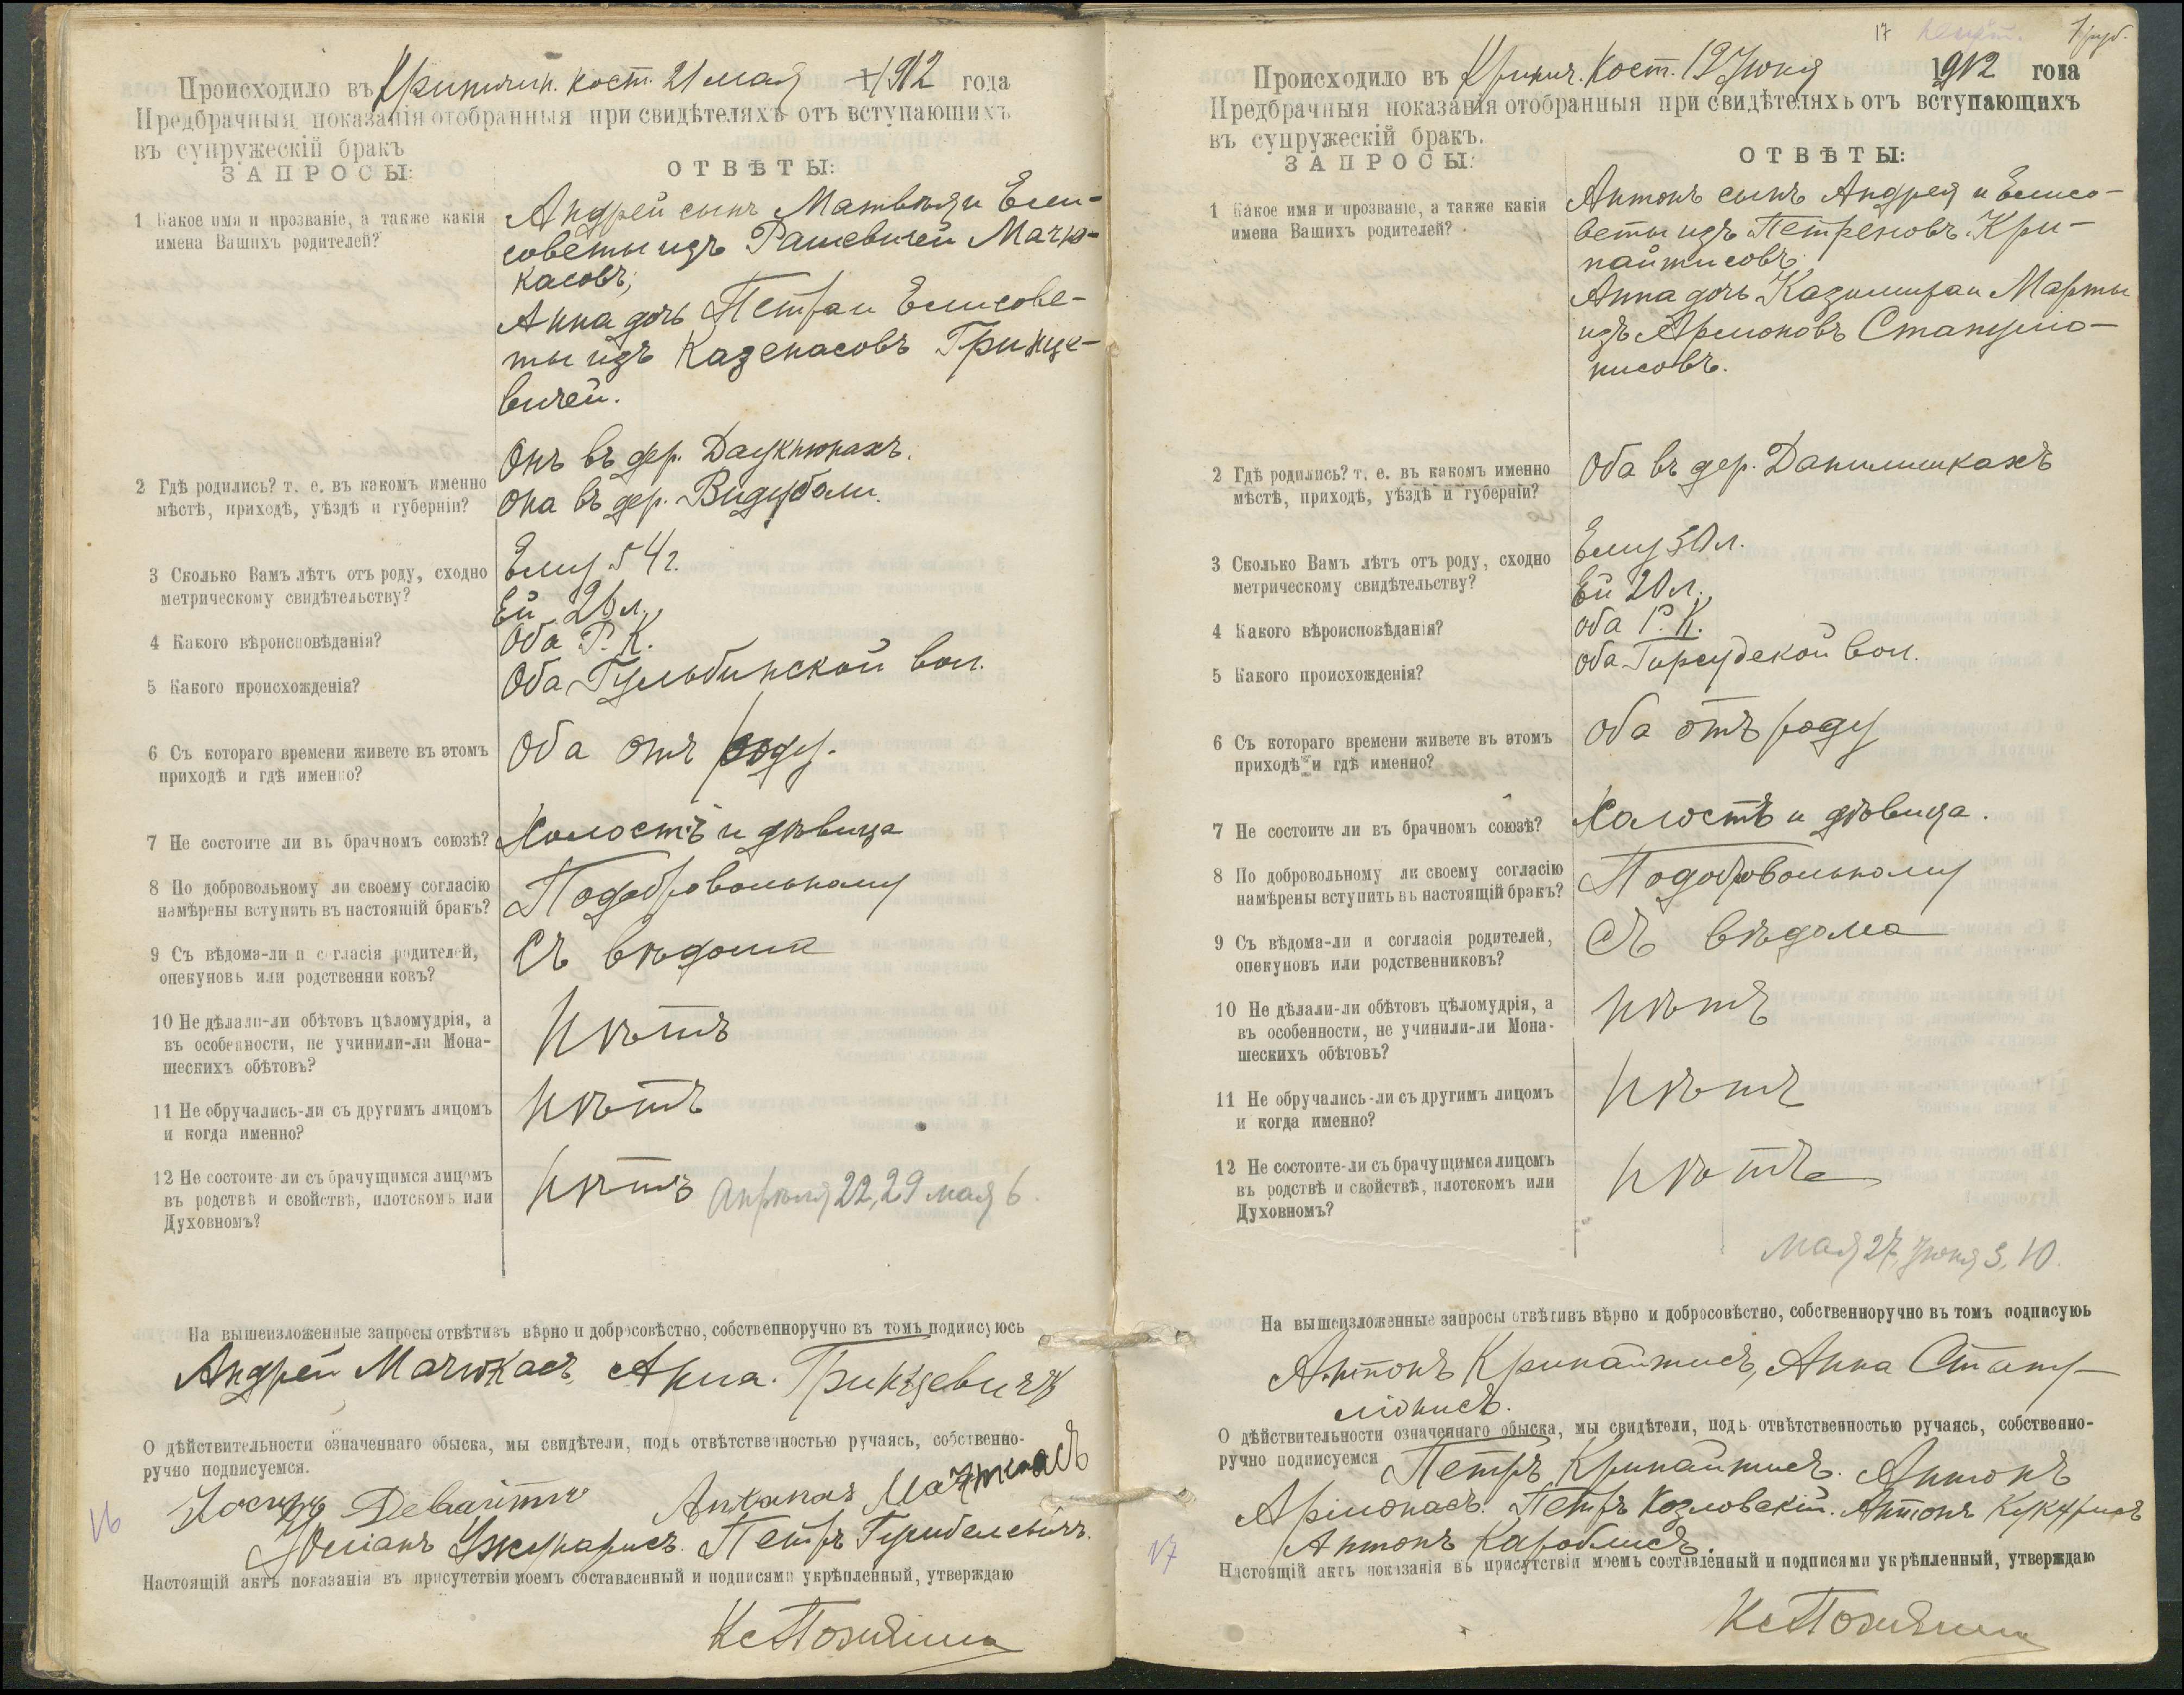 Происходило въ Кринчин. кост. 21 мая 1912 года
Предбрачныя показанія отобранныя при свидѣтеляхъ отъ вступающихъ
въ супружескій бракъ
ЗАПРОСЫ:
ОТВѢТЫ:
1 Какое имя и прозваніе, а также какія
имена Вашихъ родителей?
Андрей сынъ Матвѣя и Ели-
советы изъ Рашевичей Мачю-
касовъ;
Анна дочь Петра и Елисове-
ты изъ Казенасовъ Гринце-
вичей.
2 Гдѣ родились? т. е. въ какомъ именно
мѣстѣ, приходѣ, уѣздѣ и губерніи?
Онъ въ дер. Даукнюнахъ.
Она въ дер. Видуболи.
3 Сколько Вамъ лѣтъ отъ роду, сходно
метрическому свидѣтельству?
Ему 54 г.
Ей 26 л.
4 Какого вѣроисповѣданія?
Оба Р. К.
5 Какого происхожденія?
Оба Гульбинской вол.
6 Съ котораго времени живете въ этомъ
приходѣ и гдѣ именно?
Оба отъ роду.
7 Не состоите ли въ брачномъ союзѣ?
Холостъ и дѣвица
8 По добровольному ли своему согласію
намѣрены вступить въ настоящій бракъ?
По добровольному
9 Съ вѣдома-ли и согласія родителей,
опекуновъ или родственниковъ?
Съ вѣдома
10 Не дѣлали-ли обѣтовъ цѣломудрія, а
въ особенности, не учинили-ли Мона-
шескихъ обѣтовъ?
Нѣтъ
11 Не обручались-ли съ другимъ лицомъ
и когда именно?
Нѣтъ
12 Не состоите-ли съ брачущимся лицомъ
въ родствѣ и свойствѣ, плотскомъ или
Духовномъ?
Нѣтъ Апрѣля 22, 29 мая 6.
На вышеизложенные запросы отвѣтивъ вѣрно и добросовѣстно, собственноручно въ томъ подписуюсь
Андрей Мачюкасъ, Анна Гринцевичъ
О дѣйствительности означеннаго обыска, мы свидѣтели, подъ отвѣтственностью ручаясь, собственно-
ручно подписуемся.
Иосифъ Антанасъ Мачюкасъ
16
Юліанъ Ужкурисъ. Петръ
Настоящій актъ показанія въ присутствіи моемъ составленный и подписями укрѣпленный, утверждаю
17
Происходило въ Кринч. кост. 12 Іюня 1912 года
Предбрачныя показанія отобранныя при свидѣтеляхъ отъ вступающихъ
въ супружескій бракъ.
ЗАПРОСЫ:
ОТВѢТЫ:
1 Какое имя и прозваніе, а также какія
имена Вашихъ родителей?
Антонъ сынъ Андрея и Елисо-
веты изъ Петреновъ Кри-
пайтисовъ
Анна дочь Казимира и Марты
изъ Армоновъ Станулю-
нисовъ.
2 Гдѣ родились? т. е. въ какомъ именно
мѣстѣ, приходѣ, уѣздѣ и губерніи?
Оба въ дер. Данилишкахъ
3 Сколько Вамъ лѣтъ отъ роду, сходно
метрическому свидѣтельству?
Ему 30 л.
Ей 20 л.
4 Какого вѣроисповѣданія?
оба Р. К.
5 Какого происхожденія?
оба Гирсудской вол.
6 Съ котораго времени живете въ этомъ
приходѣ и гдѣ именно?
Оба отъ роду
7 Не состоите ли въ брачномъ союзѣ?
Холостъ и дѣвица.
8 По добровольному ли своему согласію
намѣрены вступить въ настоящій бракъ?
По добровольному
9 Съ вѣдома-ли и согласія родителей,
опекуновъ или родственниковъ?
Съ вѣдома
10 Не дѣлали-ли обѣтовъ цѣломудрія, а
въ особенности, не учинили-ли Мона-
шескихъ обѣтовъ?
Нѣтъ
11 Не обручались-ли съ другимъ лицомъ
и когда именно?
Нѣтъ
12 Не состоите-ли съ брачущимся лицомъ
въ родствѣ и свойствѣ, плотскомъ или
Духовномъ?
Нѣтъ
Мая 27, Іюня 3, 10.
На вышеизложенные запросы отвѣтивъ вѣрно и добросовѣстно, собственноручно въ томъ подписуюь
Антонъ Крипайтисъ, Анна Стану-
ліонисъ.
О дѣйствительности означеннаго обыска, мы свидѣтели, подъ отвѣтственностью ручаясь, собственно-
ручно подписуемся Петръ Крипайтисъ. Антонъ
Армонасъ. Петръ Козловскій. Антонъ
17
Антонъ Кароблисъ.
Настоящій актъ показанія въ присутствіи моемъ составленный и подписями укрѣпленный, утверждаю